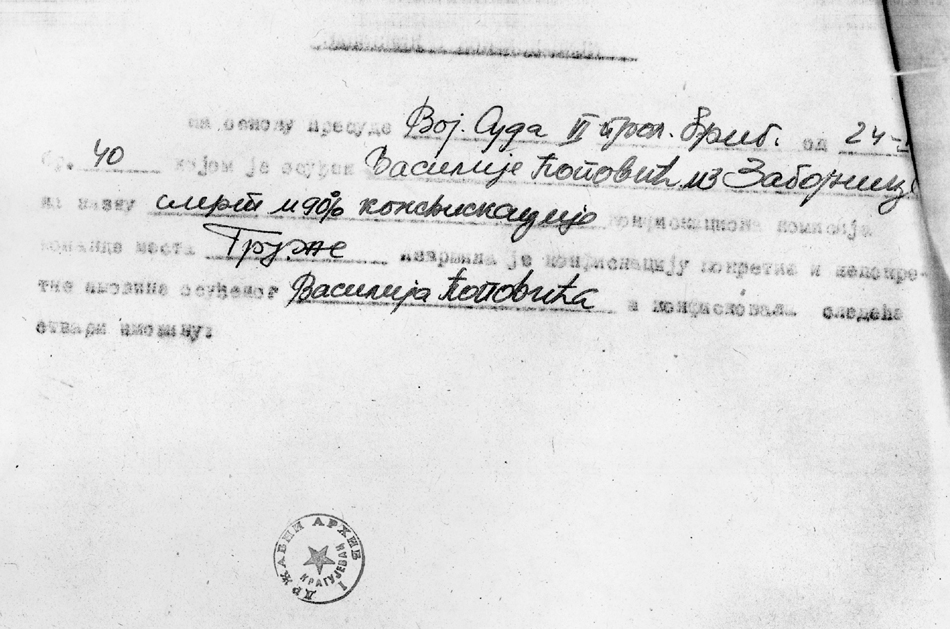 на основу пресуде Вој. Суда II прол. бриг. од 24-
бр. 40 којом је осуђен Василије Поповић из Заборнице
на казну смрт и конфискацију конфискациона комисија
команде места Груже извршила је конфискацију покретне и непокрет-
не имовине осуђеног Василија Поповића и конфисковала следећe
ствари имовину:
ДРЖАВНИ АРХИВ
КРАГУЈЕВАЦ